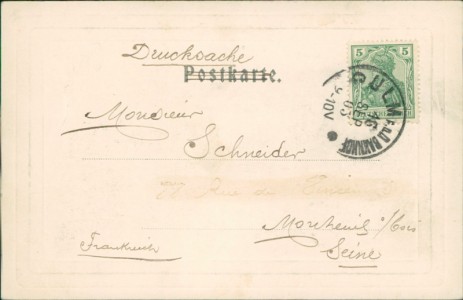 Drucksache
Postkarte.
5 5
CULM
BAHNHOF
SEP
03
9-10V
Monsieur
Schneider
Rue de
Montreuil s/bois
Seine
Frankreich